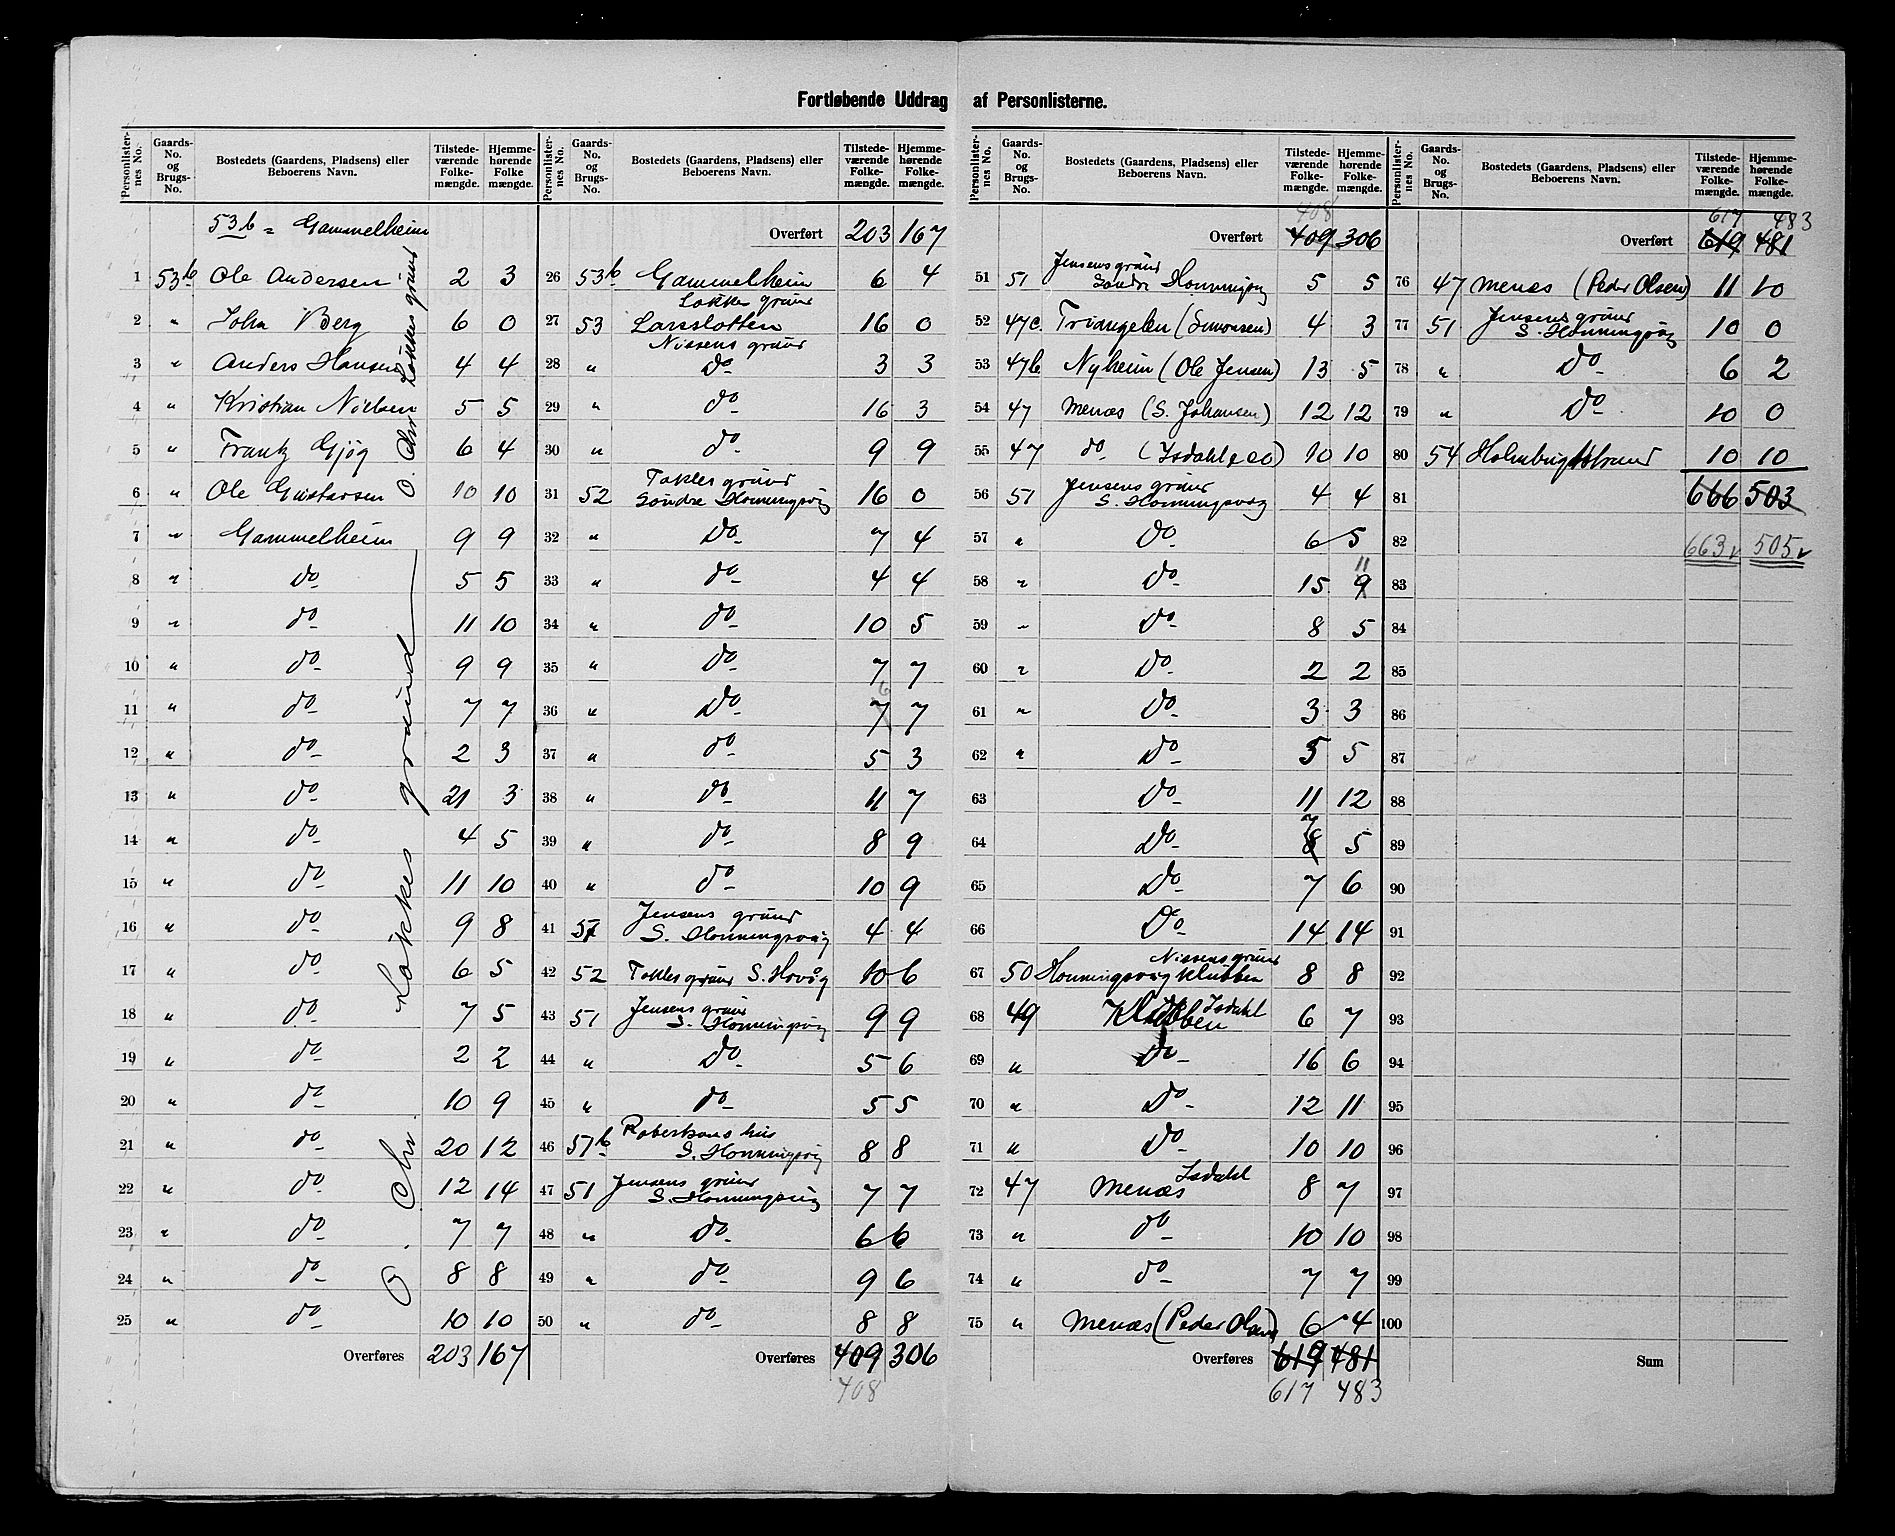 Fortløbende Uddrag af Personlisterne.
Personlister-nes No. | Gaards-No. og Brugs-No. | Bostedets (Gaardens, Pladsens) eller Beboerens Navn. | Tilstede-værende Folke-mængde. | Hjemme-hørende Folke mængde.
53b = Gammelheim
1 53b Ole Andersen 2 3
2 " John Berg 6 0
3 " Anders Hansen 4 4
4 " Kristian Nielsen 5 5
5 " Frantz Gjøg 6 4
6 " Ole Gustavsen 10 10
7 " Gammelheim 9 9
8 " do 5 5
9 " do 11 10
10 " do 9 9
11 " do 7 7
12 " do 2 3
13 " do 21 3
14 " do 4 5
15 " do 11 10
16 " do 9 8
17 " do 6 5
18 " do 7 5
19 " do 2 2
20 " do 10 9
21 " do 20 12
22 " do 12 14
23 " do 7 7
24 " do 8 8
25 " do 10 10
Overføres 203 167
O. Chr Løkkes grund
O. Chr. Løkkes grund
Personlister-nes No. | Gaards-No. og Brugs-No. | Bostedets (Gaardens, Pladsens) eller Beboerens Navn. | Tilstede-værende Folke-mængde. | Hjemme-hørende Folke-mængde.
Overført 203 167
26 53b Gammelheim 6 4
Løkkes grund
27 53 Larsslotten 16 0
Nissens grund
28 " do 3 3
29 " do 16 3
30 " do 9 9
Tokles grund
31 52 Søndre Honningsvåg 16 0
32 " do 7 4
33 " do 4 4
34 " do 10 5
35 " do 7 7
6
36 " do 7 7
37 " do 5 3
38 " do 11 7
39 " do 8 9
40 " do 10 9
Jensens grund
41 51 S. Honningsvåg 4 4
42 52 Tokles grund S. Hovåg 10 6
Jensens grund
43 51 S. Honningsvåg 9 9
44 " do 5 6
45 " do 5 5
Robertsons hus
46 51b S. Honningsvåg 8 8
Jensens grund
47 51 S. Honningsvåg 7 7
48 " do 6 6
49 " do 9 6
50 " do 8 8
Overføres 409 306
408
Personlister-nes No. | Gaards-No. og Brugs-No. | Bostedets (Gaardens, Pladsens) eller Beboerens Navn. | Tilstede-værende Folke-mængde. | Hjemme-hørende Folke-mængde.
408
Overført 409 306
Jensens grund
51 51 Søndre Honningsvåg 5 5
52 47c. Triangelen (Simonsen) 4 3
53 47b Nyheim (Ole Jensen) 13 5
54 47 Menæs (S. Johansen) 12 12
55 47 do (Isdahl & co) 10 10
Jensens grund
56 51 S. Honningsvåg 4 4
57 " do 6 5
11
58 " do 15 9
59 " do 8 5
60 " do 2 2
61 " do 3 3
62 " do 5 5
63 do 11 12
7
64 do 8 5
65 do 7 6
66 do 14 14
Nissens grund
67 50 Honningsvåg Klubben 8 8
Isdahl
68 49 Klubben 6 7
69 " do 16 6
70 " do 12 11
71 " do 10 10
Isdahl
72 47 Menæs 8 7
73 " do 10 10
74 " do 7 7
75 " Menæs (Peder Olsen) 6 4
Overføres 619 481
617 483
Personlister-nes No. | Gaards-No. og Brugs-No. | Bostedets (Gaardens, Pladsens) eller Beboerens Navn. | Tilstede-værende Folke-mængde. | Hjemme-hørende Folke-mængde.
617 483
Overført 619 481
76 47 Menæs (Peder Olsen) 11 10
Jensens grund
77 51 S. Honningsvåg 10 0
78 " do 6 2
79 " do 10 0
80 54 Holmbugtstrand 10 10
81 666 503
82 663 v 505 v
83
84
85
86
87
88
89
90
91
92
93
94
95
96
97
98
99
100
Sum